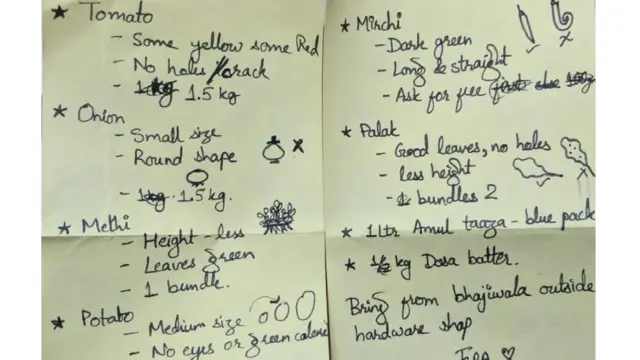 * Tomato
- Some yellow some Red
- No holes/crack
- 1kg 1.5 kg
* Onion
- Small size
- Round shape
- 1kg. 1.5 kg.
* Methi
- Height - less
- Leaves green
- 1 bundle.
* Potato
- Medium size
- No eyes or green
* Mirchi
- Dark green
- Long & straight
- Ask for free
* Palak
- Good leaves, no holes
- less height
- bundles 2
* 1 Ltr Amul taaza - blue pack
* kg Dosa batter.
Bring from bhajiwala outside
hardware shop